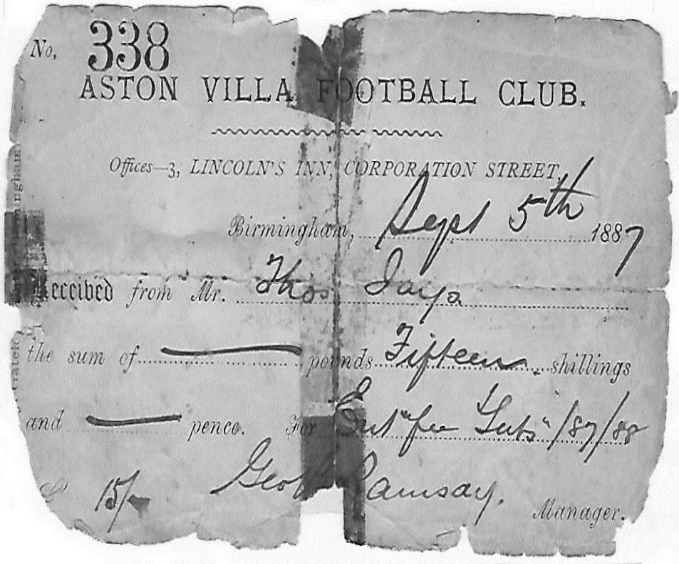 No, 338
ASTON VILLA FOOTBALL CLUB.
Offices—3, LINCOLN'S INN, CORPORATION STREET,
Birmingham, Sept 5th 1887
Received from Mr. Thos Jays
the sum of — pounds Fifteen shillings
and — pence. For Ent" fee "Subs" /87/88
£ 15/-
Geo. Ramsay.
Manager.